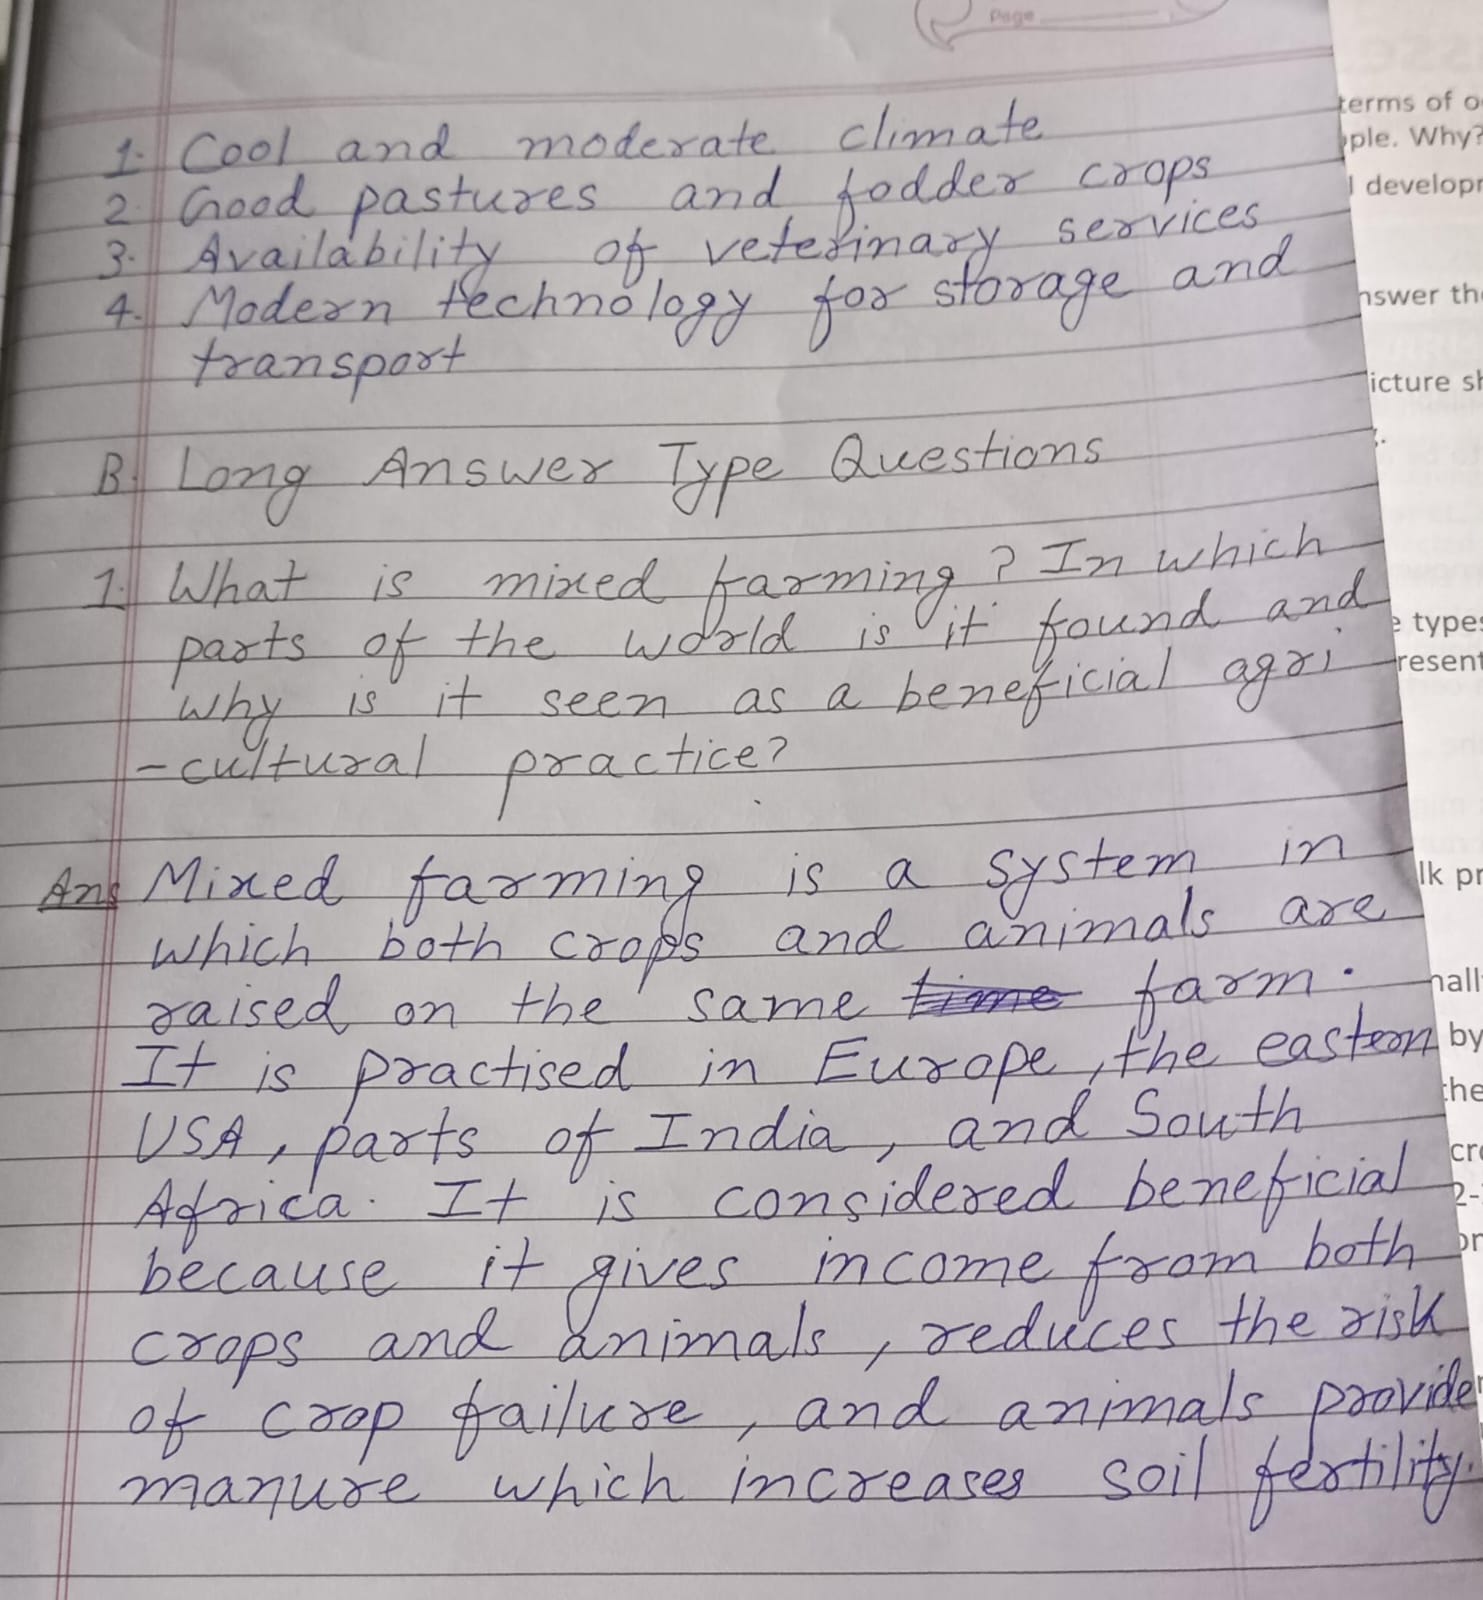 Page
1. Cool and moderate climate
2. Good pastures and fodder crops
3. Availability of veterinary services
4. Modern technology for storage and
transport
B. Long Answer Type Questions
1. What is mixed farming? In which
parts of the world is it found and
why is it seen as a beneficial agri
-cultural practice?
Ans Mixed farming is a system in
which both crops and animals are
raised on the same time farm.
It is practised in Europe, the eastern
USA, parts of India, and South
Africa. It is considered beneficial
because it gives income from both
crops and animals, reduces the risk
of crop failure, and animals provide
manure which increases soil fertility.
terms of
ple. Why?
developm
nswer the
icture sh
type
resent
lk pr
nall
by
the